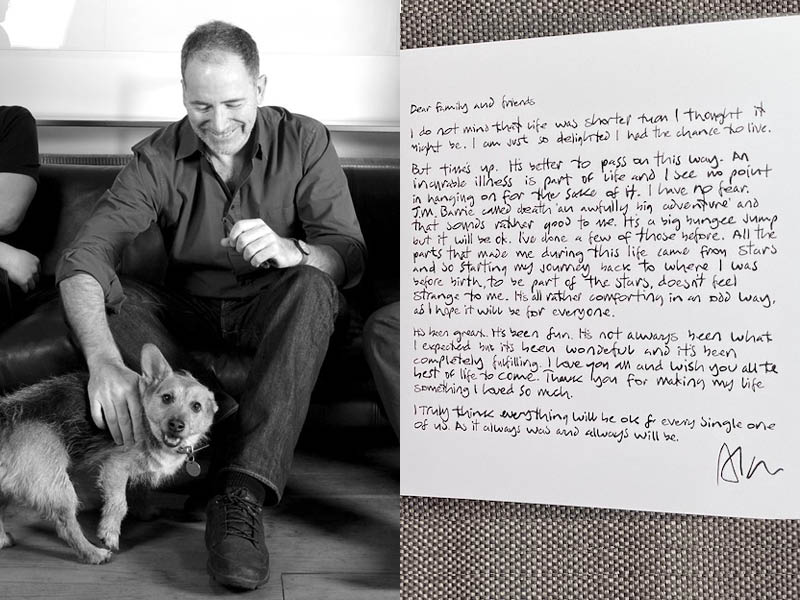 Dear Family and friends
I do not mind that life was shorter than I thought it
might be. I am just so delighted I had the chance to live.
But time's up. It's better to pass on this way. An
incurable illness is part of life and I see no point
in hanging on for the sake of it. I have no fear.
J.M. Barrie called death 'an awfully big adventure' and
that sounds rather good to me. It's a big bungee jump
but it will be ok. I've done a few of those before. All the
parts that made me during this life came from stars
and so starting my journey back to where I was
before birth, to be part of the stars, doesn't feel
strange to me. It's all rather comforting in an odd way,
as I hope it will be for everyone.
It's been great. It's been fun. It's not always been what
I expected but it's been wondeful and it's been
completely fulfilling. I love you all and wish you all the
best of life to come. Thank you for making my life
something I loved so much.
I truly think everything will be ok for every single one
of us. As it always was and always will be.
Alan